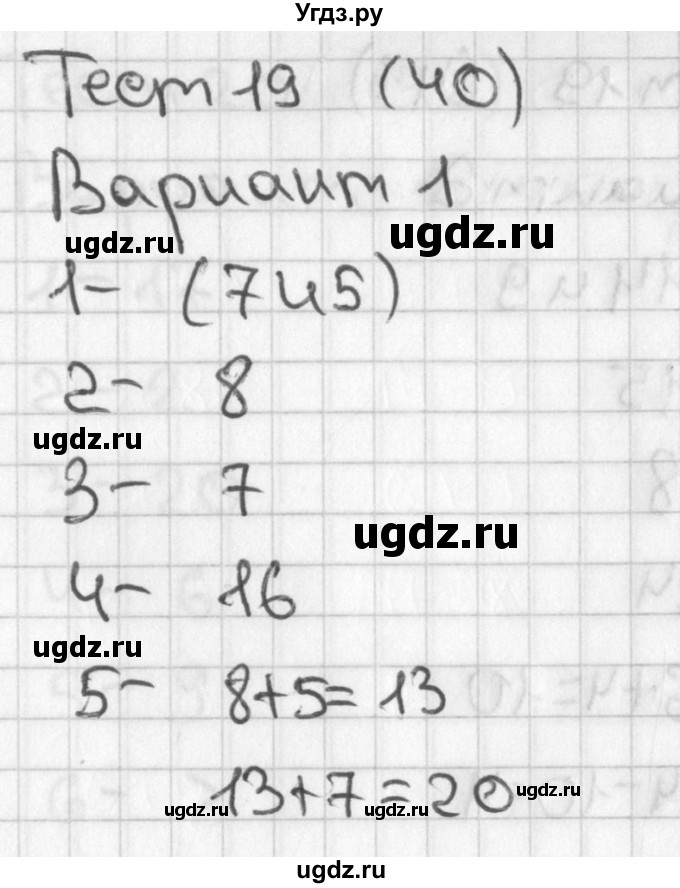 Угдз.ру
Тест 19 (40)
Вариант 1
ugdz.ru
ugdz.ru
1- (7 и 5)
2- 8
ugdz.ru
3- 7
ugdz.ru
4- 16
ugdz.ru
5- 8+5=13
13+7=20
ugdz.ru
ugdz.ru
ugdz.ru
ugdz.ru